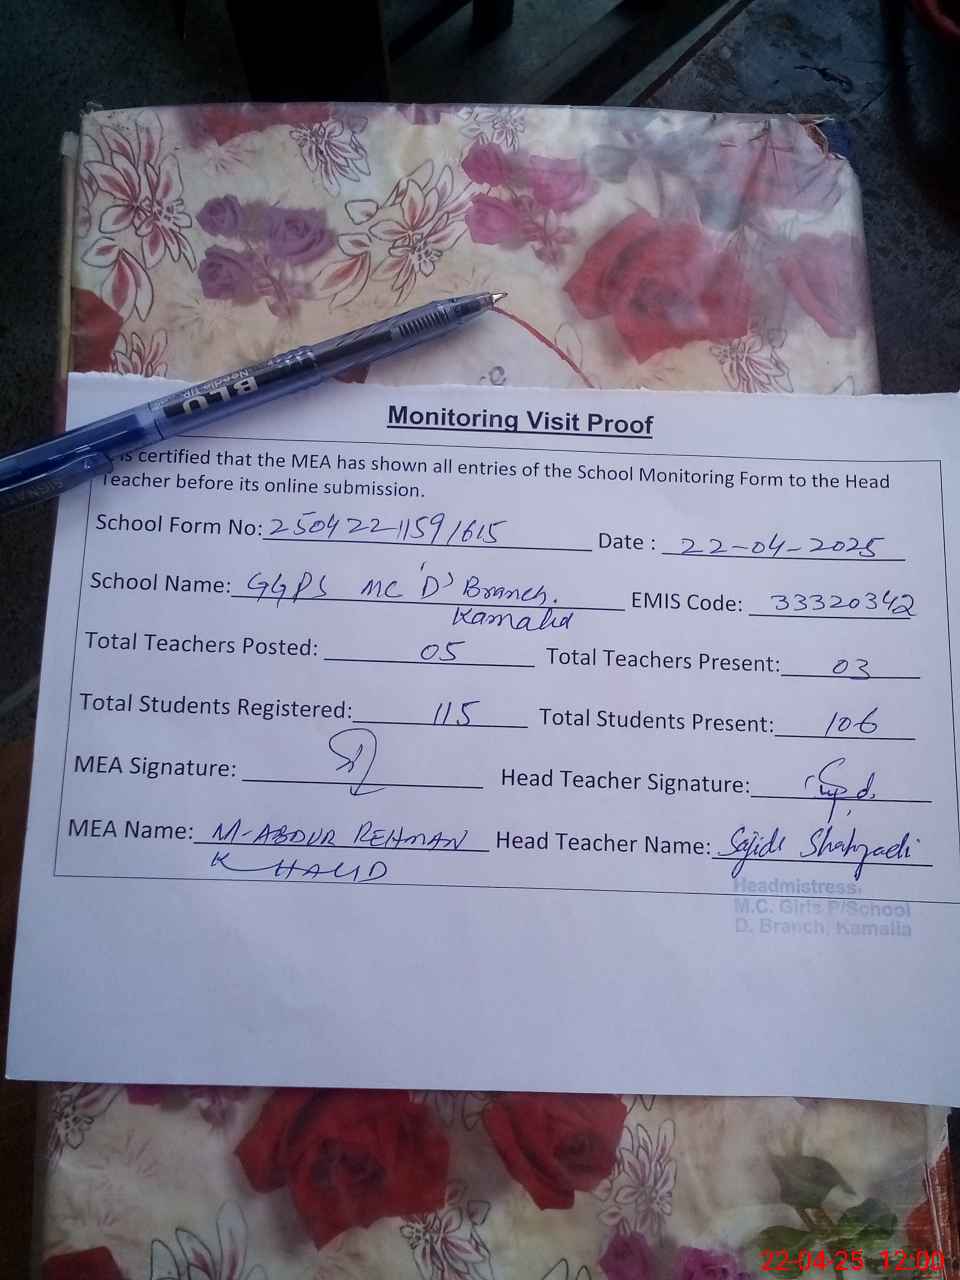 BLU
Needle TIP
SIGNA
Monitoring Visit Proof
is certified that the MEA has shown all entries of the School Monitoring Form to the Head
Teacher before its online submission.
School Form No: 25042211591615 Date : 22-04-2025
School Name: GGPS MC 'D' Branch. EMIS Code: 33320342
Kamalia
Total Teachers Posted: 05 Total Teachers Present: 03
Total Students Registered: 115 Total Students Present: 106
MEA Signature: Head Teacher Signature:
MEA Name: M-ABDUR REHMAN Head Teacher Name: Sajida Shahzadi
KHALID
Headmistress
M.C. Girls P/School
D. Branch, Kamalia
22-04-25 12:00